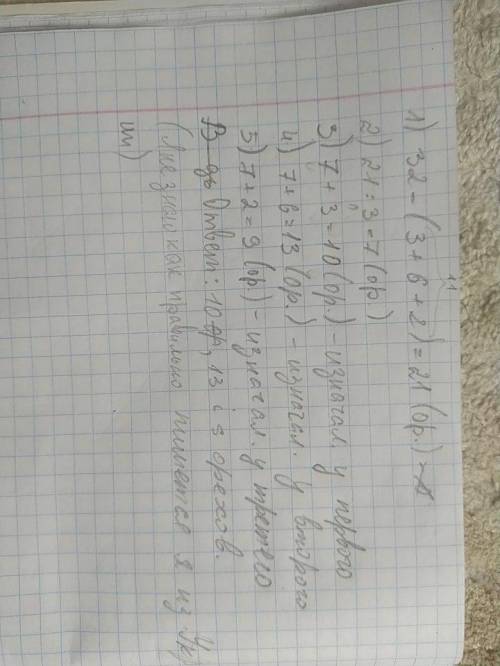 11
1) 32 - (3 + 6 + 2) = 21 (ор.)
2) 21 : 3 = 7 (ор.)
3) 7 + 3 = 10 (ор.) - изначал. у первого
4) 7 + 6 = 13 (ор.) - изначал. у второго
5) 7 + 2 = 9 (ор.) - изначал. у третего
Ответ: 10, 13 і 9 орехов.
(я не знаю как правильно пишется я из Ук